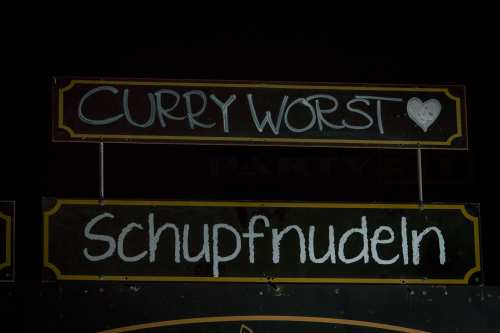 CURRY WORST
Schupfnudeln